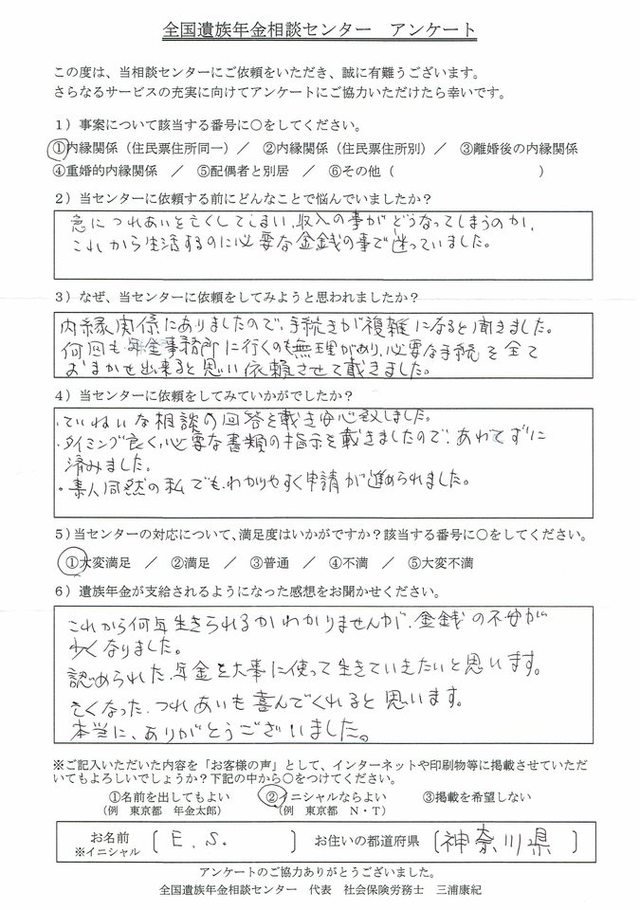 全国遺族年金相談センター　アンケート
この度は、当相談センターにご依頼をいただき、誠に有難うございます。
さらなるサービスの充実に向けてアンケートにご協力いただけたら幸いです。
1）事案について該当する番号に○をしてください。
①内縁関係（住民票住所同一）／　②内縁関係（住民票住所別）／　③離婚後の内縁関係
④重婚的内縁関係　／　⑤配偶者と別居　／　⑥その他（　　　　　　　　　　）
2）当センターに依頼する前にどんなことで悩んでいましたか？
急につれあいを亡くしてしまい、収入の事がどうなってしまうのか、
これから生活するのに必要な金銭の事で迷っていました。
3）なぜ、当センターに依頼をしてみようと思われましたか？
内縁関係にありましたので、手続きが複雑になると聞きました。
何回も年金事務所に行くのも無理があり、必要な手続を全て
おまかせ出来ると思い依頼させて戴きました。
4）当センターに依頼をしてみていかがでしたか？
・ていねいな相談の回答を戴き安心致しました。
・タイミング良く、必要な書類の指示を戴きましたので、あわてずに
済みました。
・素人同然の私でも、わかりやすく申請が進められました。
5）当センターの対応について、満足度はいかがですか？該当する番号に○をしてください。
①大変満足　／　②満足　／　③普通　／　④不満　／　⑤大変不満
6）遺族年金が支給されるようになった感想をお聞かせください。
これから何年生きられるかわかりませんが、金銭の不安が
少くなりました。
認められた、年金を大事に使って生きていきたいと思います。
亡くなった、つれあいも喜んでくれると思います。
本当に、ありがとうございました。
※ご記入いただいた内容を「お客様の声」として、インターネットや印刷物等に掲載させていただ
いてもよろしいでしょうか？下記の中から○をつけてください。
①名前を出してもよい　　②イニシャルならよい　　③掲載を希望しない
（例　東京都　年金太郎）　　（例　東京都　N・T）
お名前　（ E. S. ）　お住いの都道府県　（神奈川県）
※イニシャル
アンケートのご協力ありがとうございました。
全国遺族年金相談センター　代表　社会保険労務士　三浦康紀